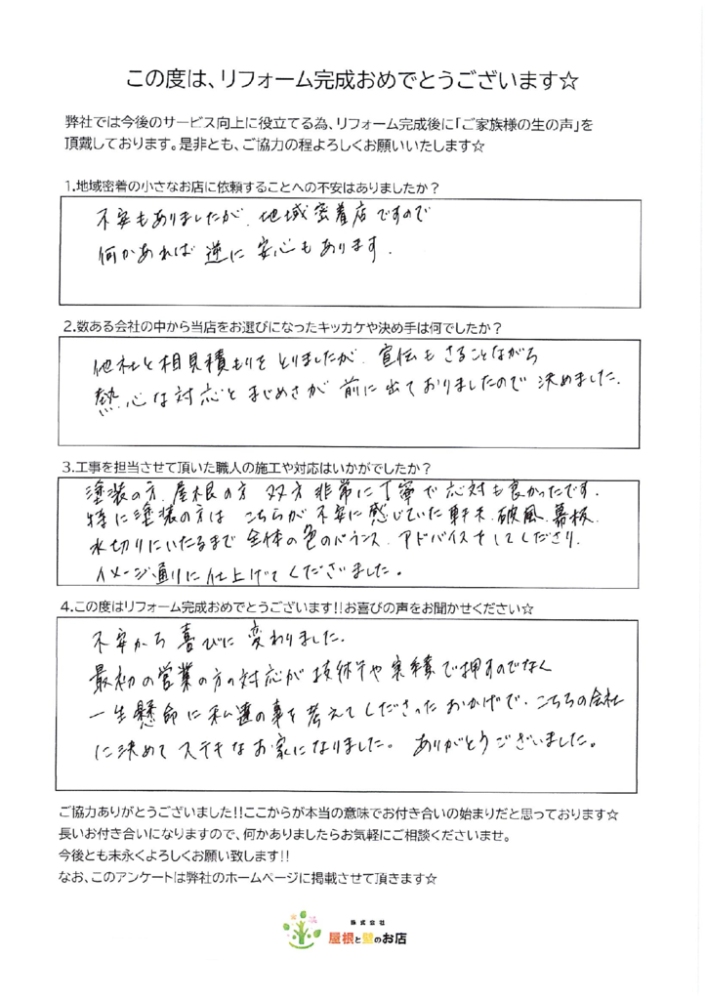 この度は、リフォーム完成おめでとうございます☆
弊社では今後のサービス向上に役立てる為、リフォーム完成後に「ご家族様の生の声」を
頂戴しております。是非とも、ご協力の程よろしくお願いいたします☆
1.地域密着の小さなお店に依頼することへの不安はありましたか?
不安もありましたが、地域密着店ですので
何かあれば逆に安心もあります.
2.数ある会社の中から当店をお選びになったキッカケや決め手は何でしたか?
他社と相見積もりをとりましたが、宣伝もさることながら
熱心な対応とまじめさが前に出ておりましたので決めました.
3.工事を担当させて頂いた職人の施工や対応はいかがでしたか?
塗装の方、屋根の方 双方非常に丁寧で応対も良かったです.
特に塗装の方は こちらが不安に感じていた軒天、破風、幕板、
水切りにいたるまで全体の色のバランス、アドバイスをしてくださり、
イメージ通りに仕上げてくださいました。
4.この度はリフォーム完成おめでとうございます!!お喜びの声をお聞かせください☆
不安から喜びに変わりました.
最初の営業の方の対応が技術や実績で押すのでなく
一生懸命に私達の事を考えてくださったおかげで、こちらの会社
に決めてステキなお家になりました。 ありがとうございました。
ご協力ありがとうございました!!ここからが本当の意味でお付き合いの始まりだと思っております☆
長いお付き合いになりますので、何かありましたらお気軽にご相談くださいませ。
今後とも末永くよろしくお願い致します!!
なお、このアンケートは弊社のホームページに掲載させて頂きます☆
株式会社
屋根と壁のお店